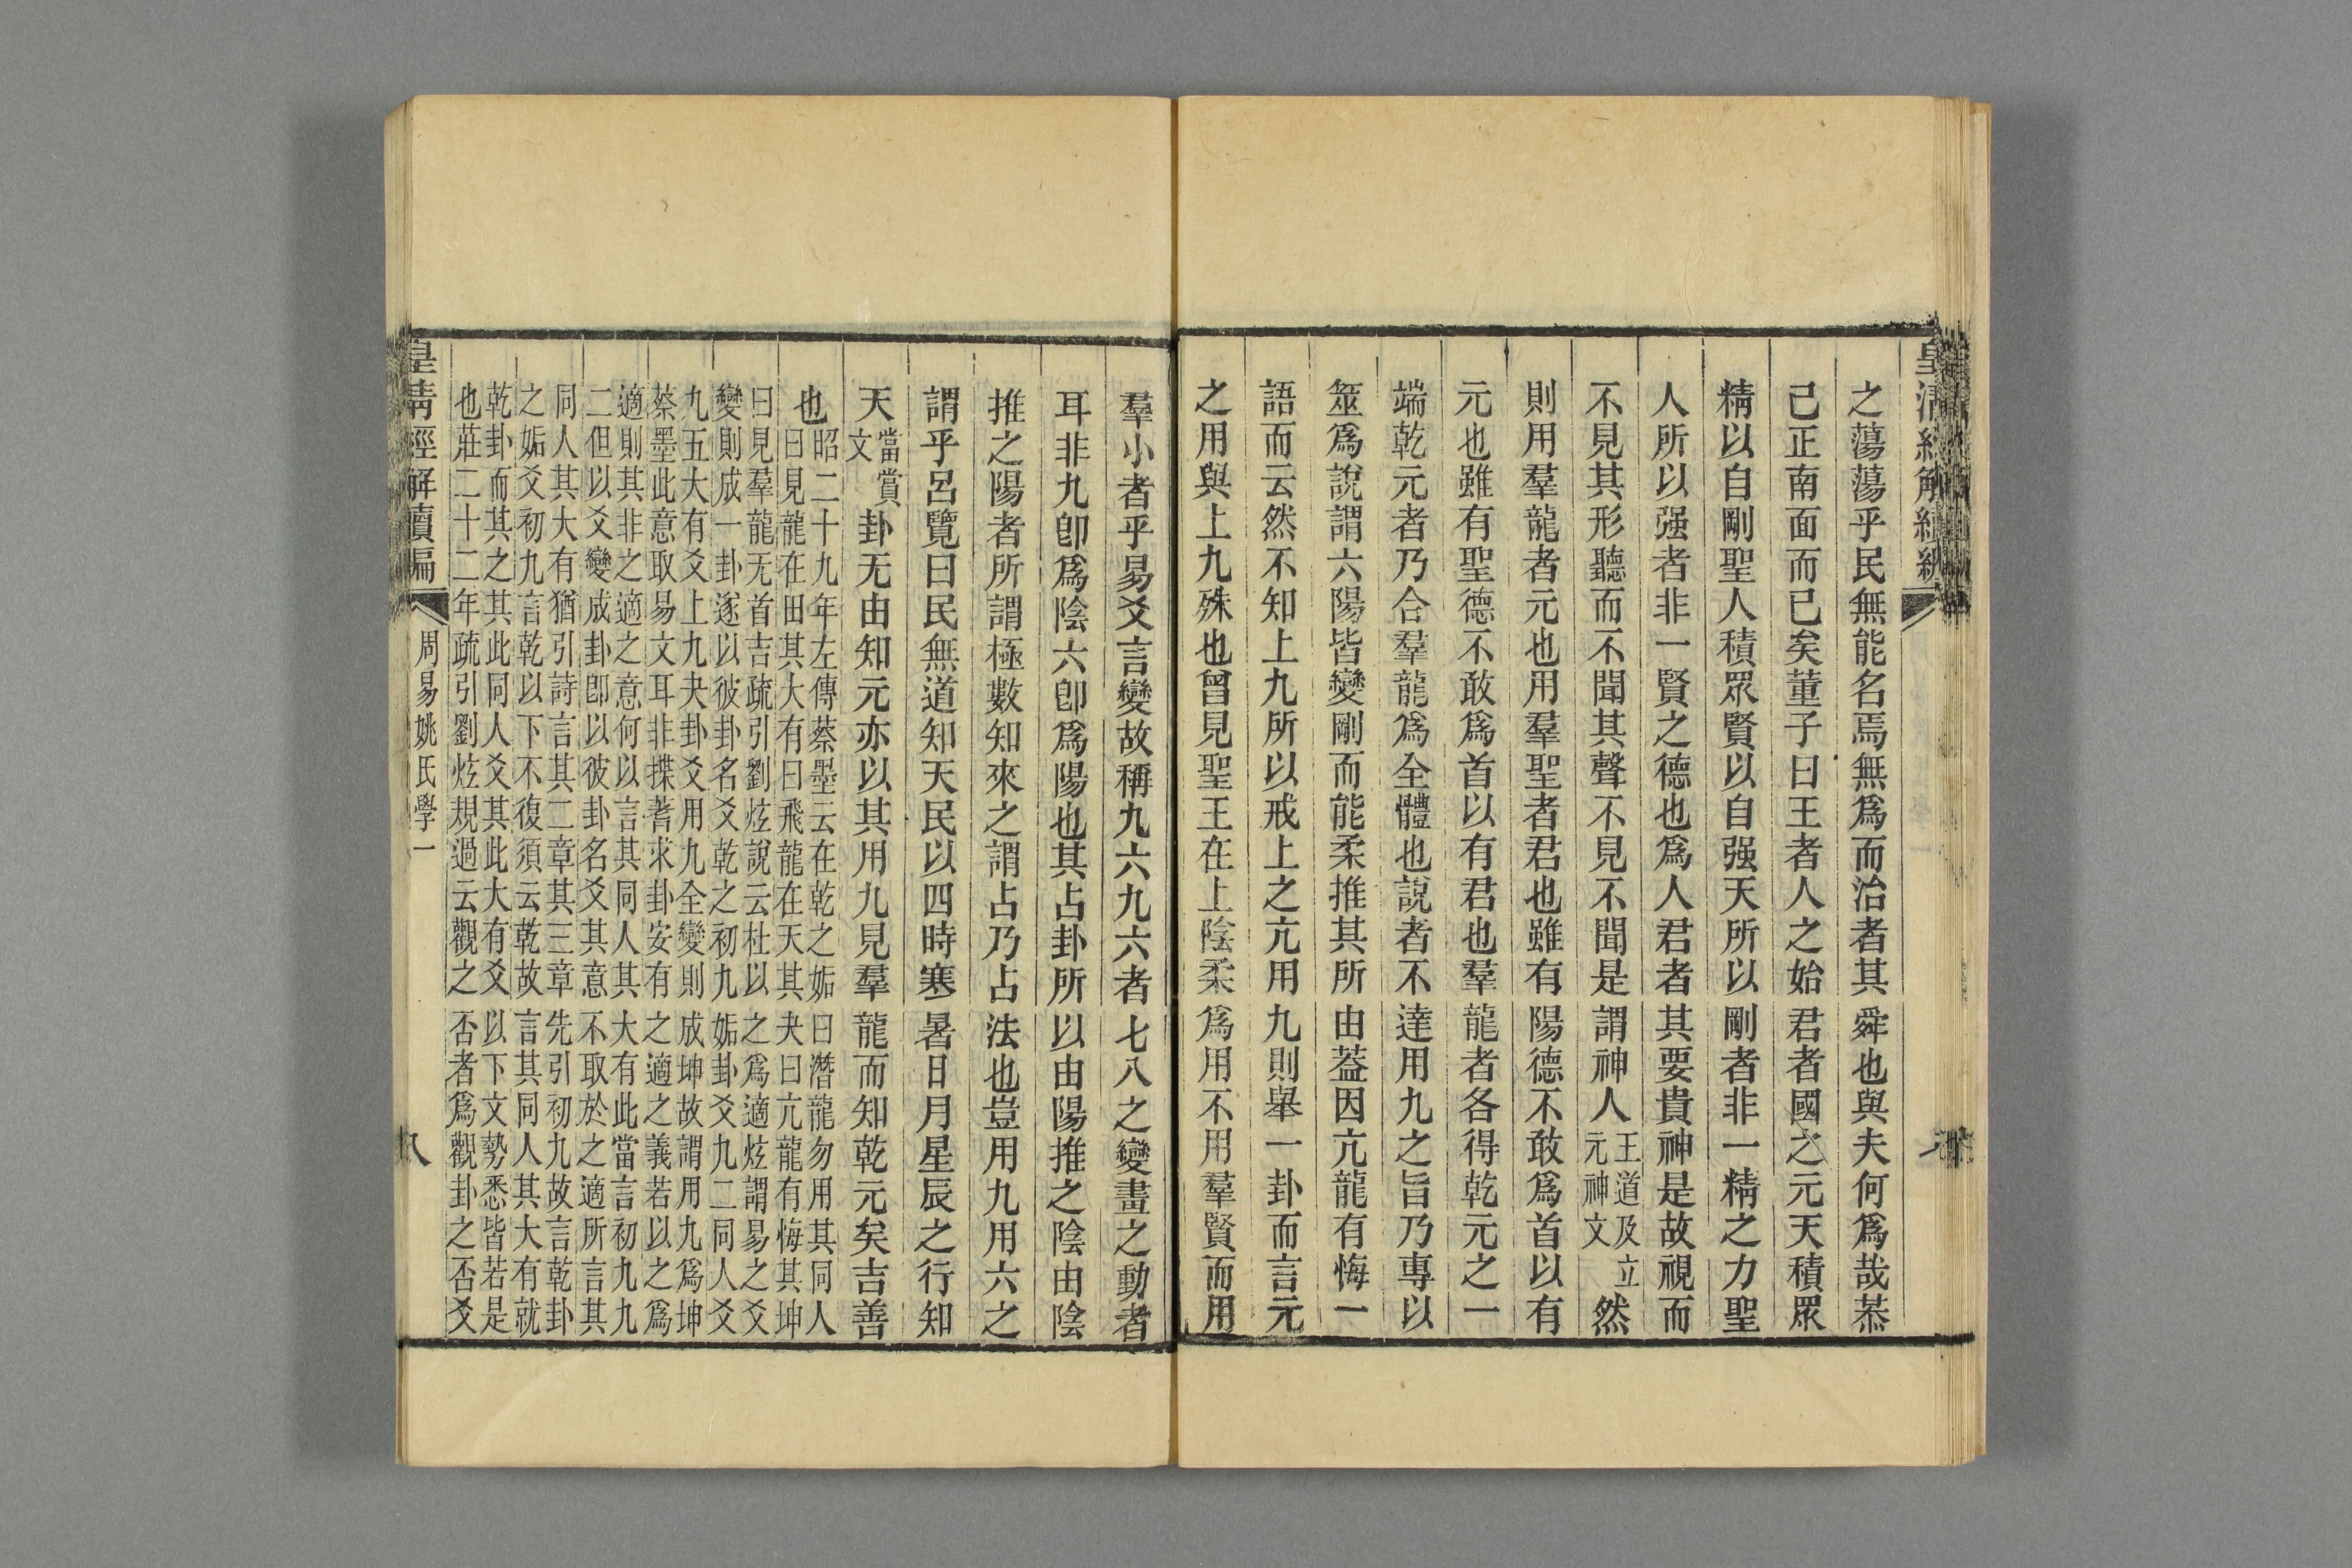 皇清經解續編
之蕩蕩乎民無能名焉無爲而治者其舜也與夫何爲哉恭
己正南面而已矣董子曰王者人之始君者國之元天積眾
精以自剛聖人積眾賢以自强天所以剛者非一精之力聖
人所以强者非一賢之德也爲人君者其要貴神是故視而
不見其形聽而不聞其聲不見不聞是謂神人王道及立元神文然
則用羣龍者元也用羣聖者君也雖有陽德不敢爲首以有
元也雖有聖德不敢爲首以有君也羣龍者各得乾元之一
端乾元者乃合羣龍爲全體也說者不達用九之旨乃專以
筮爲說謂六陽皆變剛而能柔推其所由葢因亢龍有悔一
語而云然不知上九所以戒上之亢用九則舉一卦而言元
之用與上九殊也曾見聖王在上陰柔爲用不用羣賢而用
羣小者乎易爻言變故稱九六九六者七八之變畫之動者
耳非九卽爲陰六卽爲陽也其占卦所以由陽推之陰由陰
推之陽者所謂極數知來之謂占乃占法也豈用九用六之
謂乎呂覽曰民無道知天民以四時寒暑日月星辰之行知
天當賞文卦无由知元亦以其用九見羣龍而知乾元矣吉善
也昭二十九年左傳蔡墨云在乾之姤曰潛龍勿用其同人
曰見龍在田其大有曰飛龍在天其夬曰亢龍有悔其坤
曰見羣龍无首吉疏引劉炫說云杜以之爲適炫謂易之爻
變則成一卦遂以彼卦名爻乾之初九姤卦爻九二同人爻
九五大有爻上九夬卦爻用九全變則成坤故謂用九爲坤
蔡墨此意取易文耳非揲蓍求卦安有之適之義若以之爲
適則其非之適之意何以言其同人其大有此當言初九九
二但以爻變成卦卽以彼卦名爻其意不取於之適所言其
同人其大有猶引詩言其二章其三章先引初九故言乾卦
之姤爻初九言乾以下不復須云乾故言其同人其大有就
乾卦而其之其此同人爻其此大有爻以下文勢悉皆若是
也莊二十二年疏引劉炫規過云觀之否者爲觀卦之否爻
皇清經解續編
周易姚氏學一
八